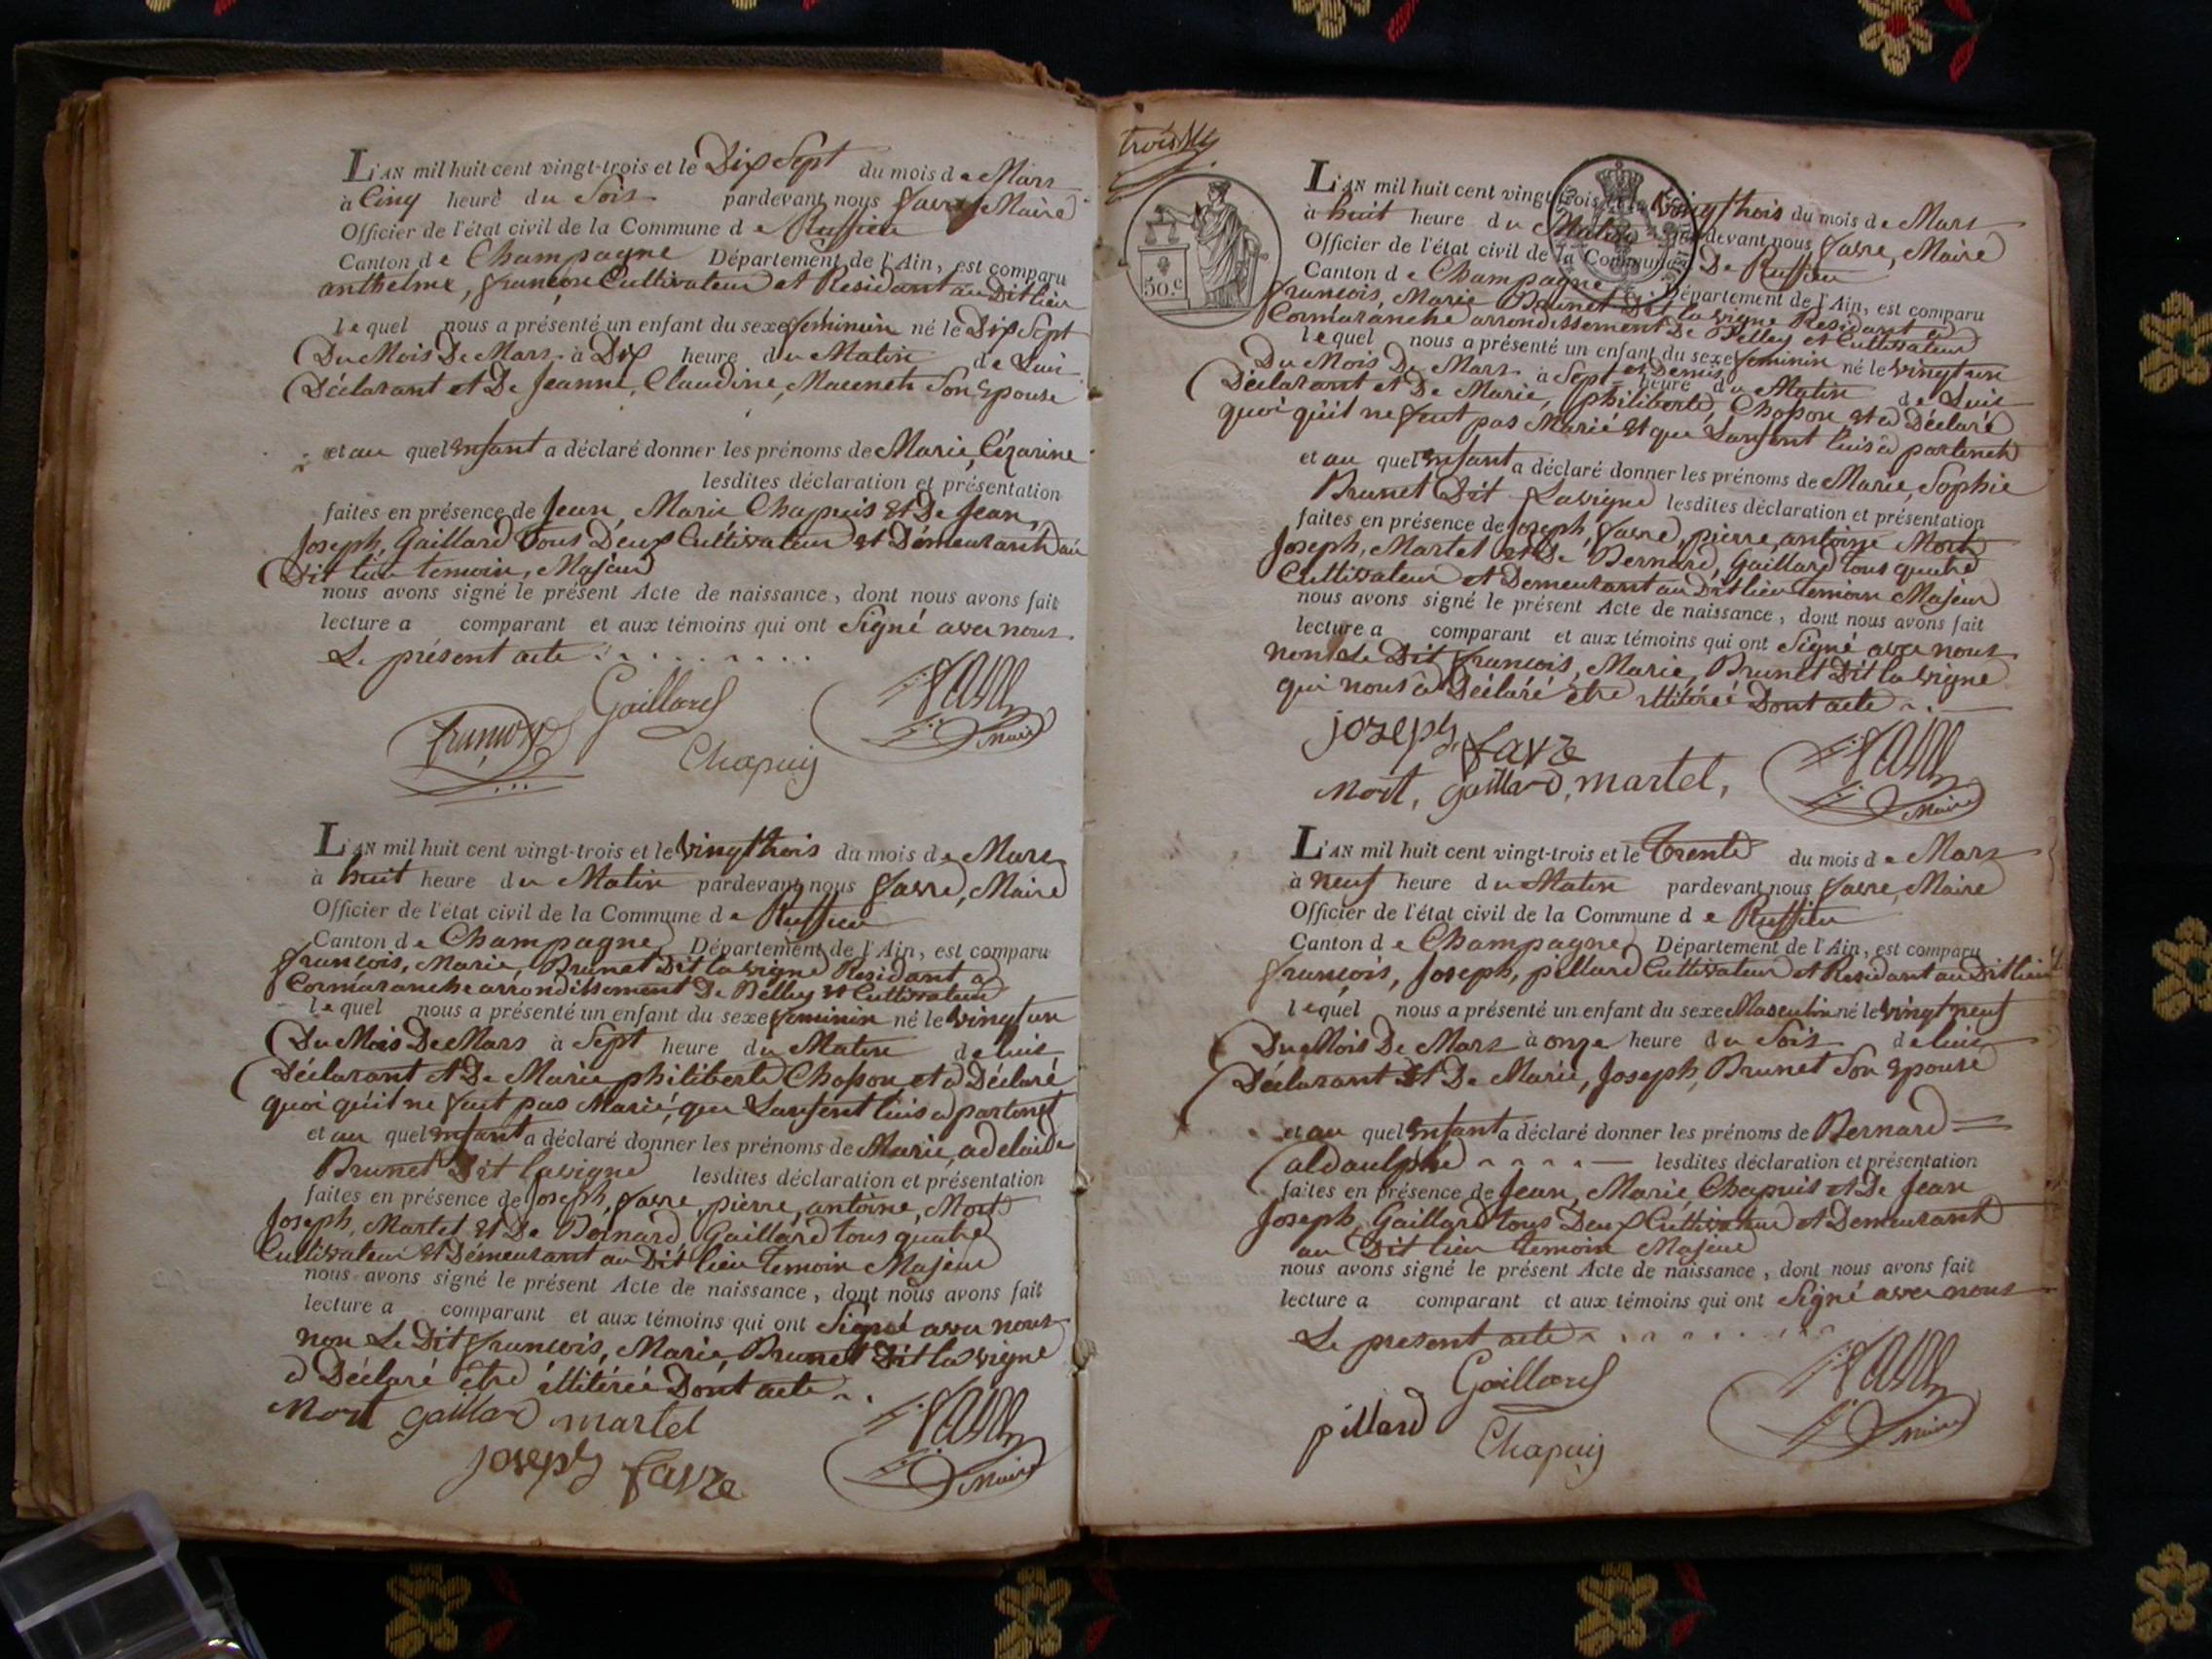 L'AN mil huit cent vingt-trois et le Dix Sept du mois de Mars
à Cinq heure du Soir pardevant nous favre Maire
Officier de l'état civil de la Commune de Ruffieu
Canton de Champagne Département de l'Ain, est comparu
anthelme, françon Cultivateur et Residant au Dit lieu
lequel nous a présenté un enfant du sexe feminin né le Dix Sept
Du Mois De Mars à Dix heure du Matin de Lui
Déclarant et De Jeanne, Claudine, Macenet Son Epouse
et au quel enfant a déclaré donner les prénoms de Marie, Cézarine
lesdites déclaration et présentation
faites en présence de Jean, Marie Chapuis et De Jean,
Joseph, Gaillard Tous Deux Cultivateur et Démeurant au
Dit lieu temoin, Majeur
nous avons signé le présent Acte de naissance, dont nous avons fait
lecture a comparant et aux témoins qui ont Signé avec nous
Le présent acte
Gaillard
favre
Maire
Chapuis
L'AN mil huit cent vingt-trois et le vingt trois du mois de Mars
à huit heure du Matin pardevant nous favre, Maire
Officier de l'état civil de la Commune de Ruffieu
Canton de Champagne Département de l'Ain, est comparu
françois, Marie, Brunet Dit lavigne Residant a
Cormaranche arrondissement De Belley et Cultivateur
lequel nous a présenté un enfant du sexe feminin né le vingt un
Du Mois De Mars à Sept heure du Matin de luis
Déclarant et De Marie philiberte Chosson et a Déclaré
quoi qu'il ne fut pas Marié, que Lenfent luis a partenet
et au quel enfant a déclaré donner les prénoms de Marie, adelaide
Brunet Dit lavigne lesdites déclaration et présentation
faites en présence de Joseph, favre, pierre, antoine, Mort
Joseph, Martel et De Bernard, Gaillard tous quatre
Cultivateur et Démeurant au Dit lieu temoin Majeur
nous avons signé le présent Acte de naissance, dont nous avons fait
lecture a comparant et aux témoins qui ont Signé avec nous
non Le Dit françois, Marie, Brunet Dit la vigne
a Déclaré être illitérée Dont acte
Mort gaillard martel
favre
Maire
joseph favre
50.c
L'AN mil huit cent vingt-trois et le vingt trois du mois de Mars
à huit heure du Matin pardevant nous favre, Maire
Officier de l'état civil de la Commune De Ruffieu
Canton de Champagne Département de l'Ain, est comparu
francois, Marie Brunet Dit la vigne Residant a
Cormaranche arrondissement De Belley et Cultivateur
lequel nous a présenté un enfant du sexe feminin né le vingt un
Du Mois De Mars à Sept et Demis heure du Matin de Luis
Déclarant et De Marie, philiberte, Chosson et a Déclaré
quoi qu'il ne fut pas Marié et que Lenfent luis a partenet
et au quel enfant a déclaré donner les prénoms de Marie, Sophie
Brunet Dit Lavigne lesdites déclaration et présentation
faites en présence de Joseph, favre, pierre, antoine Mort
Joseph, Martel et De Bernard, Gaillard tous quatre
Cultivateur et Demeurant au Dit lieu temoin Majeur
nous avons signé le présent Acte de naissance, dont nous avons fait
lecture a comparant et aux témoins qui ont Signé avec nous
non Le Dit francois, Marie, Brunet Dit la vigne
qui nous a Déclaré être illitérée Dont acte
joseph favre
favre
Maire
Mort, gaillard, martel,
L'AN mil huit cent vingt-trois et le Trente du mois de Mars
à neuf heure du Matin pardevant nous favre, Maire
Officier de l'état civil de la Commune de Ruffieu
Canton de Champagne Département de l'Ain, est comparu
françois, Joseph, pillard Cultivateur et Residant au Dit lieu
lequel nous a présenté un enfant du sexe Masculin né le vingt neuf
Du Mois De Mars à onze heure du Soir de luis
Déclarant et De Marie, Joseph, Brunet Son Epouse
et au quel enfant a déclaré donner les prénoms de Bernard
aldaulphe lesdites déclaration et présentation
faites en présence de Jean, Marie Chapuis et De Jean
Joseph, Gaillard tous Deux Cultivateur et Demeurant
au Dit lieu temoin Majeur
nous avons signé le présent Acte de naissance, dont nous avons fait
lecture a comparant et aux témoins qui ont Signé avec nous
Le present acte
Gaillard
favre
Maire
pillard
Chapuis